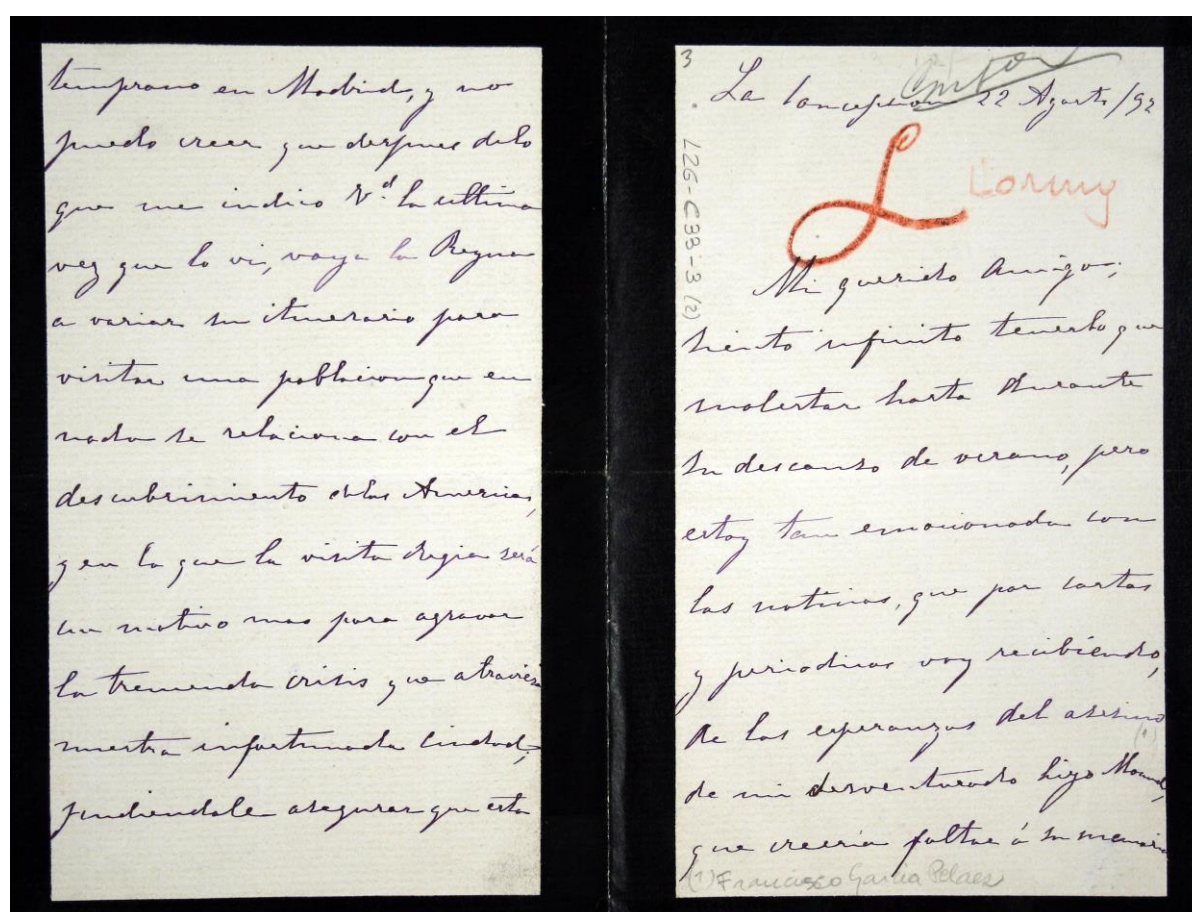 temprano en Madrid, y no
puedo creer que despues delo
que me indico Vd. la ultima
vez que lo vi, vaya la Reyna
a variar su itinerario para
visitar una poblacion que en
nada se relaciona con el
descubrimiento delas Americas,
y en la que la visita Regia será
un motivo mas para agravar
la tremenda crisis que atraviesa
nuestra infortunada Ciudad;
pudiendole asegurar que esta
3
La Concepcion 22 Agosto/92
L26-C33-3 (2)
L
Mi querido Amigo;
siento infinito tenerlo que
molestar hasta durante
su descanso de verano, pero
estoy tan emocionada con
las noticias, que por cartas
y periodicos voy recibiendo,
de las esperanzas del asesino
(1)
de mi desventurado hijo Manuel,
que creeria faltar á su memoria
(1) Francisco Garcia Pelaez